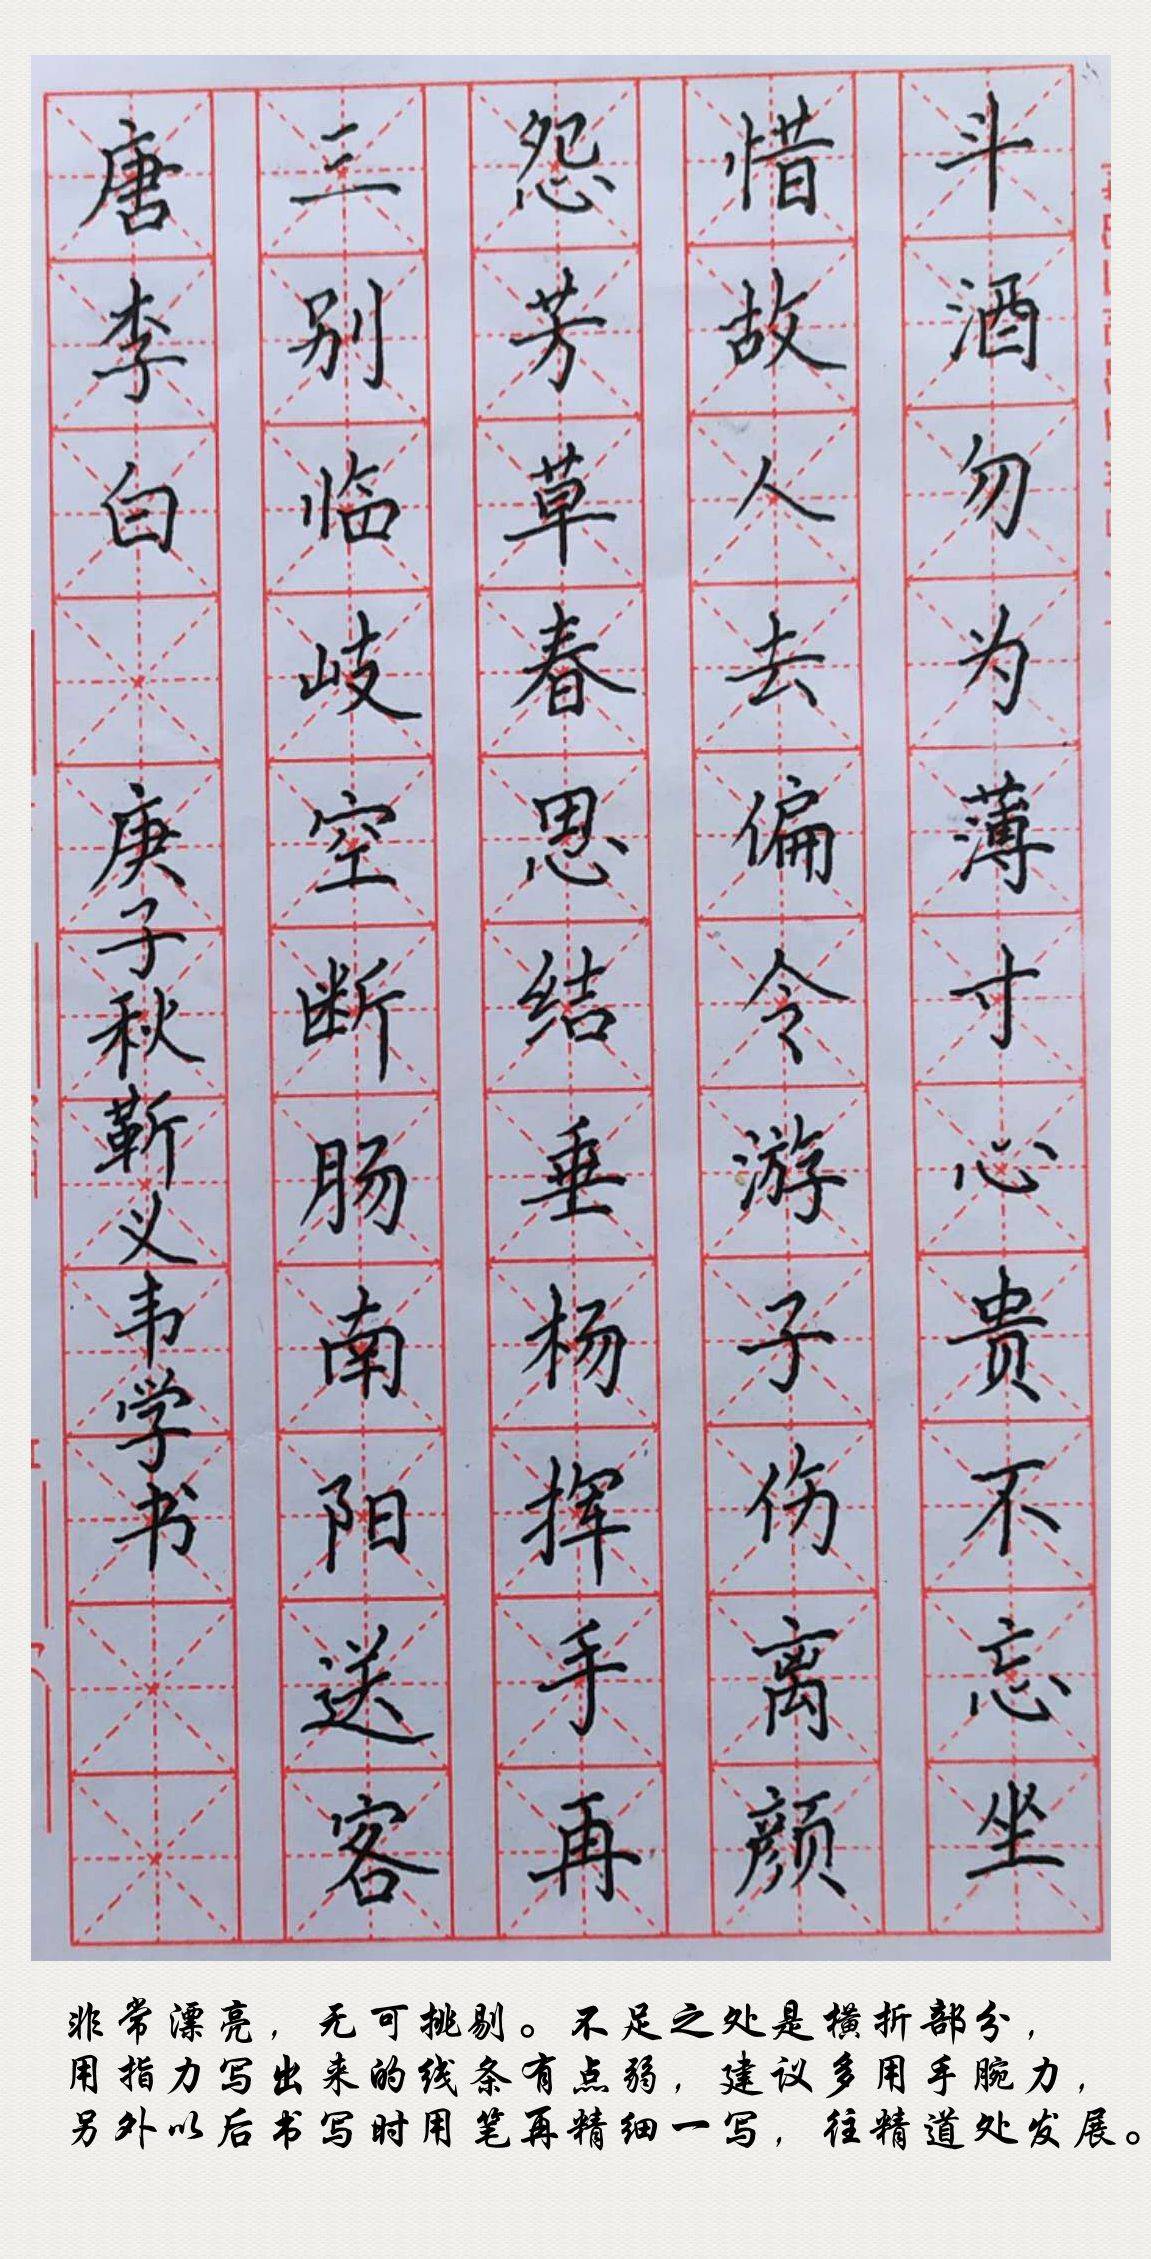 斗酒勿为薄寸心贵不忘坐
惜故人去偏令游子伤离颜
怨芳草春思结垂杨挥手再
三别临岐空断肠南阳送客
唐李白 庚子秋靳义韦学书
非常漂亮，无可挑剔。不足之处是横折部分，
用指力写出来的线条有点弱，建议多用手腕力，
另外以后书写时用笔再精细一写，往精道处发展。